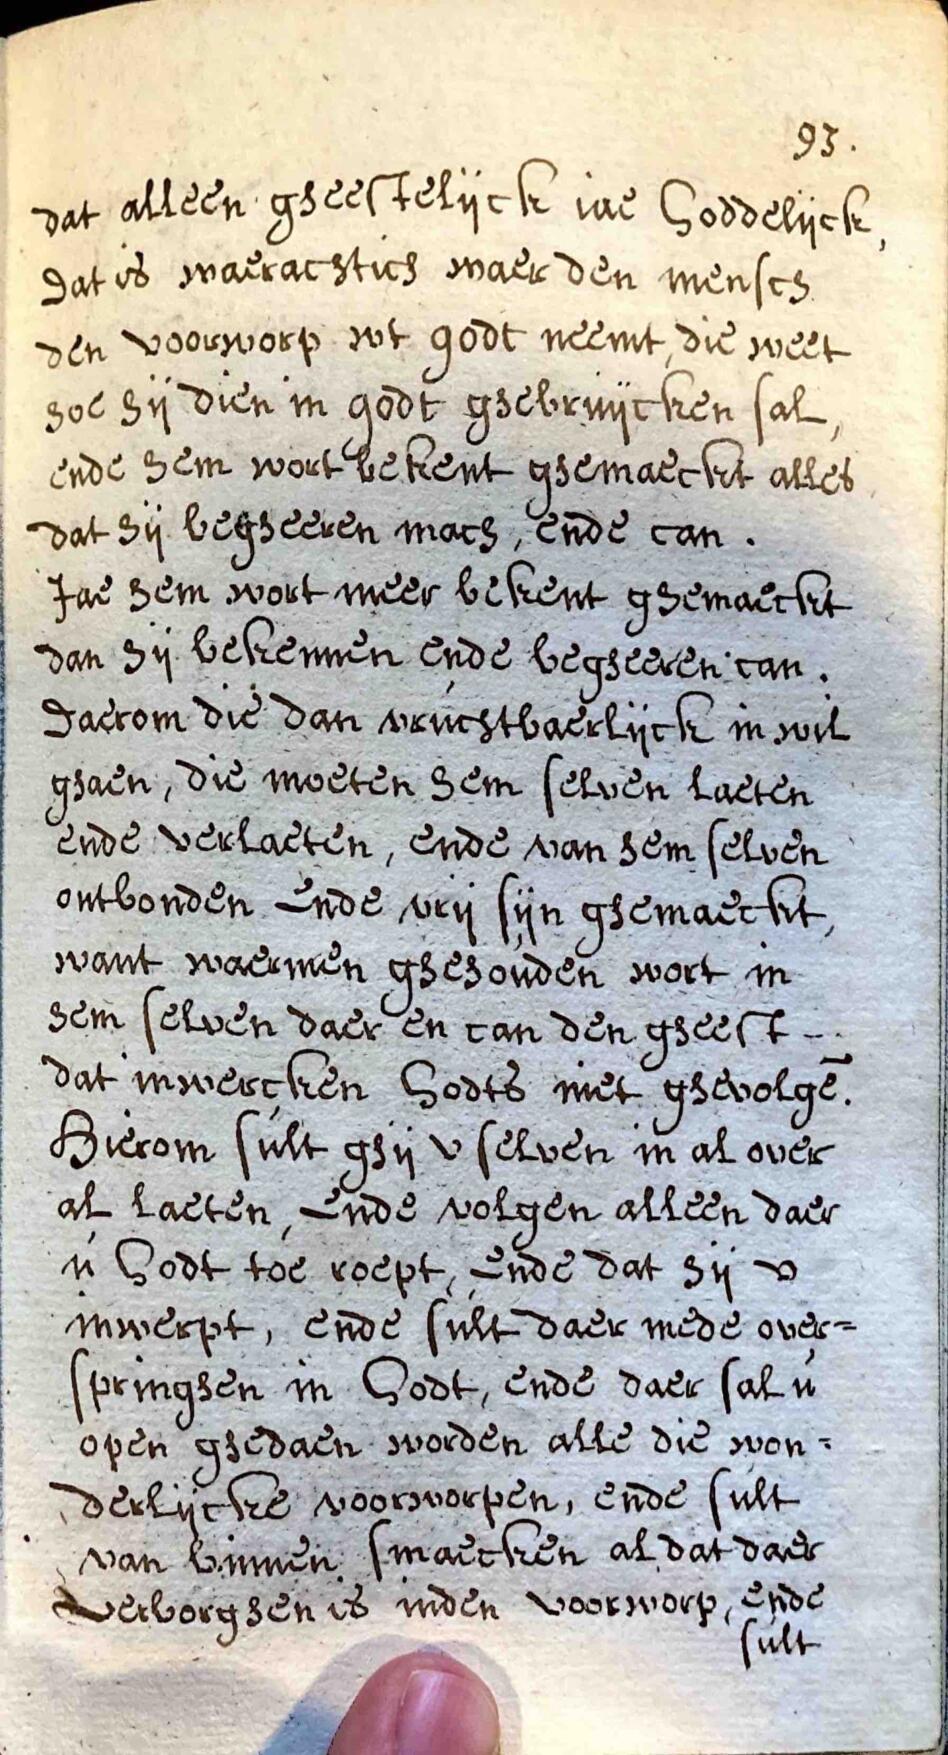 93.
dat alleen gheestelijck iae Goddelijck,
Dat is waerachtich waer den mensch
den voorworp wt godt neemt, die weet
hoe hij dien in godt ghebruijcken sal,
ende hem wort bekent ghemaeckt alles
dat hij begheeren mach, ende can.
Jae hem wort meer bekent ghemaeckt
dan hij bekennen ende begheeren can.
Daerom die dan vruchtbaerlijck in wil
ghaen, die moeten hem selven laeten
ende verlaeten, ende van hem selven
ontbonden Ende vrij sijn ghemaeckt,
want waermen ghehouden wort in
hem selven daer en can den gheest -
dat inwercken Godts niet ghevolgē.
Hierom sult ghij v selven in al over
al laeten, Ende volgen alleen daer
u Godt toe roept, Ende dat hij v
inwerpt, ende sult daer mede over=
springhen in Godt, ende daer sal u
open ghedaen worden alle die won=
derlijcke voorworpen, ende sult
van binnen smaecken al dat daer
verborghen is inden voorworp, ende
sult